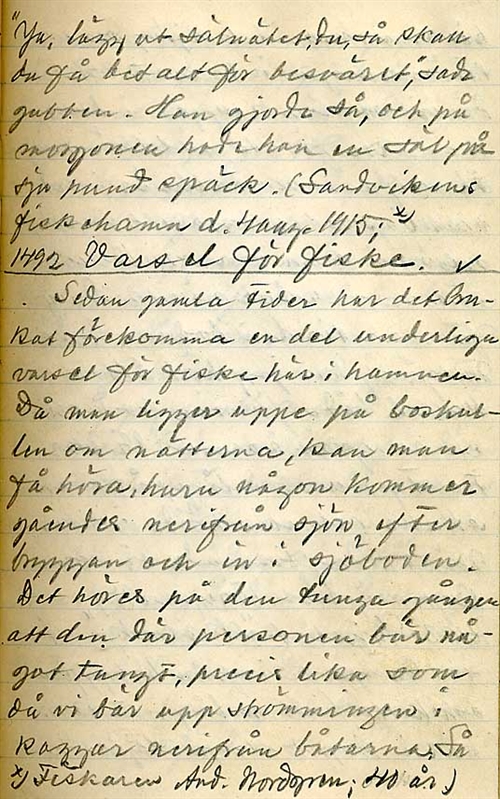 "Ja, lägg ut sälnätet, du, så skall
du få betalt för besväret," sade
gubben. Han gjorde så, och på
morgonen hade han en säl på
sju pund späck. (Sandvikens
fiskehamn d. 4 aug. 1915; x)
1492 Varsel för fiske. ✓
Sedan gamla tider har det bru-
kat förekomma en del underliga
varsel för fiske här i hamnen.
Då man ligger uppe på boskul-
len om nätterna, kan man
få höra, huru någon kommer
gåendes nerifrån sjön efter
bryggan och in i sjöboden.
Det höres på den tunga gången
att den där personen bär nå-
got tungt, precis lika som
då vi bär upp strömmingen i
kaggar nerifrån båtarna. Så
x) Fiskaren And. Nordgren; 40 år.)